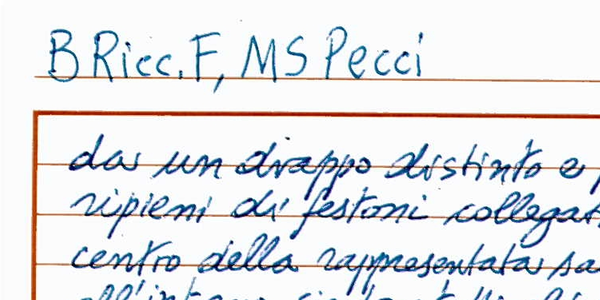 B Ricc. F, MS Pecci
da un drappo distinto e
ripieni di festoni collegat
centro della rappresentata sa
all'int